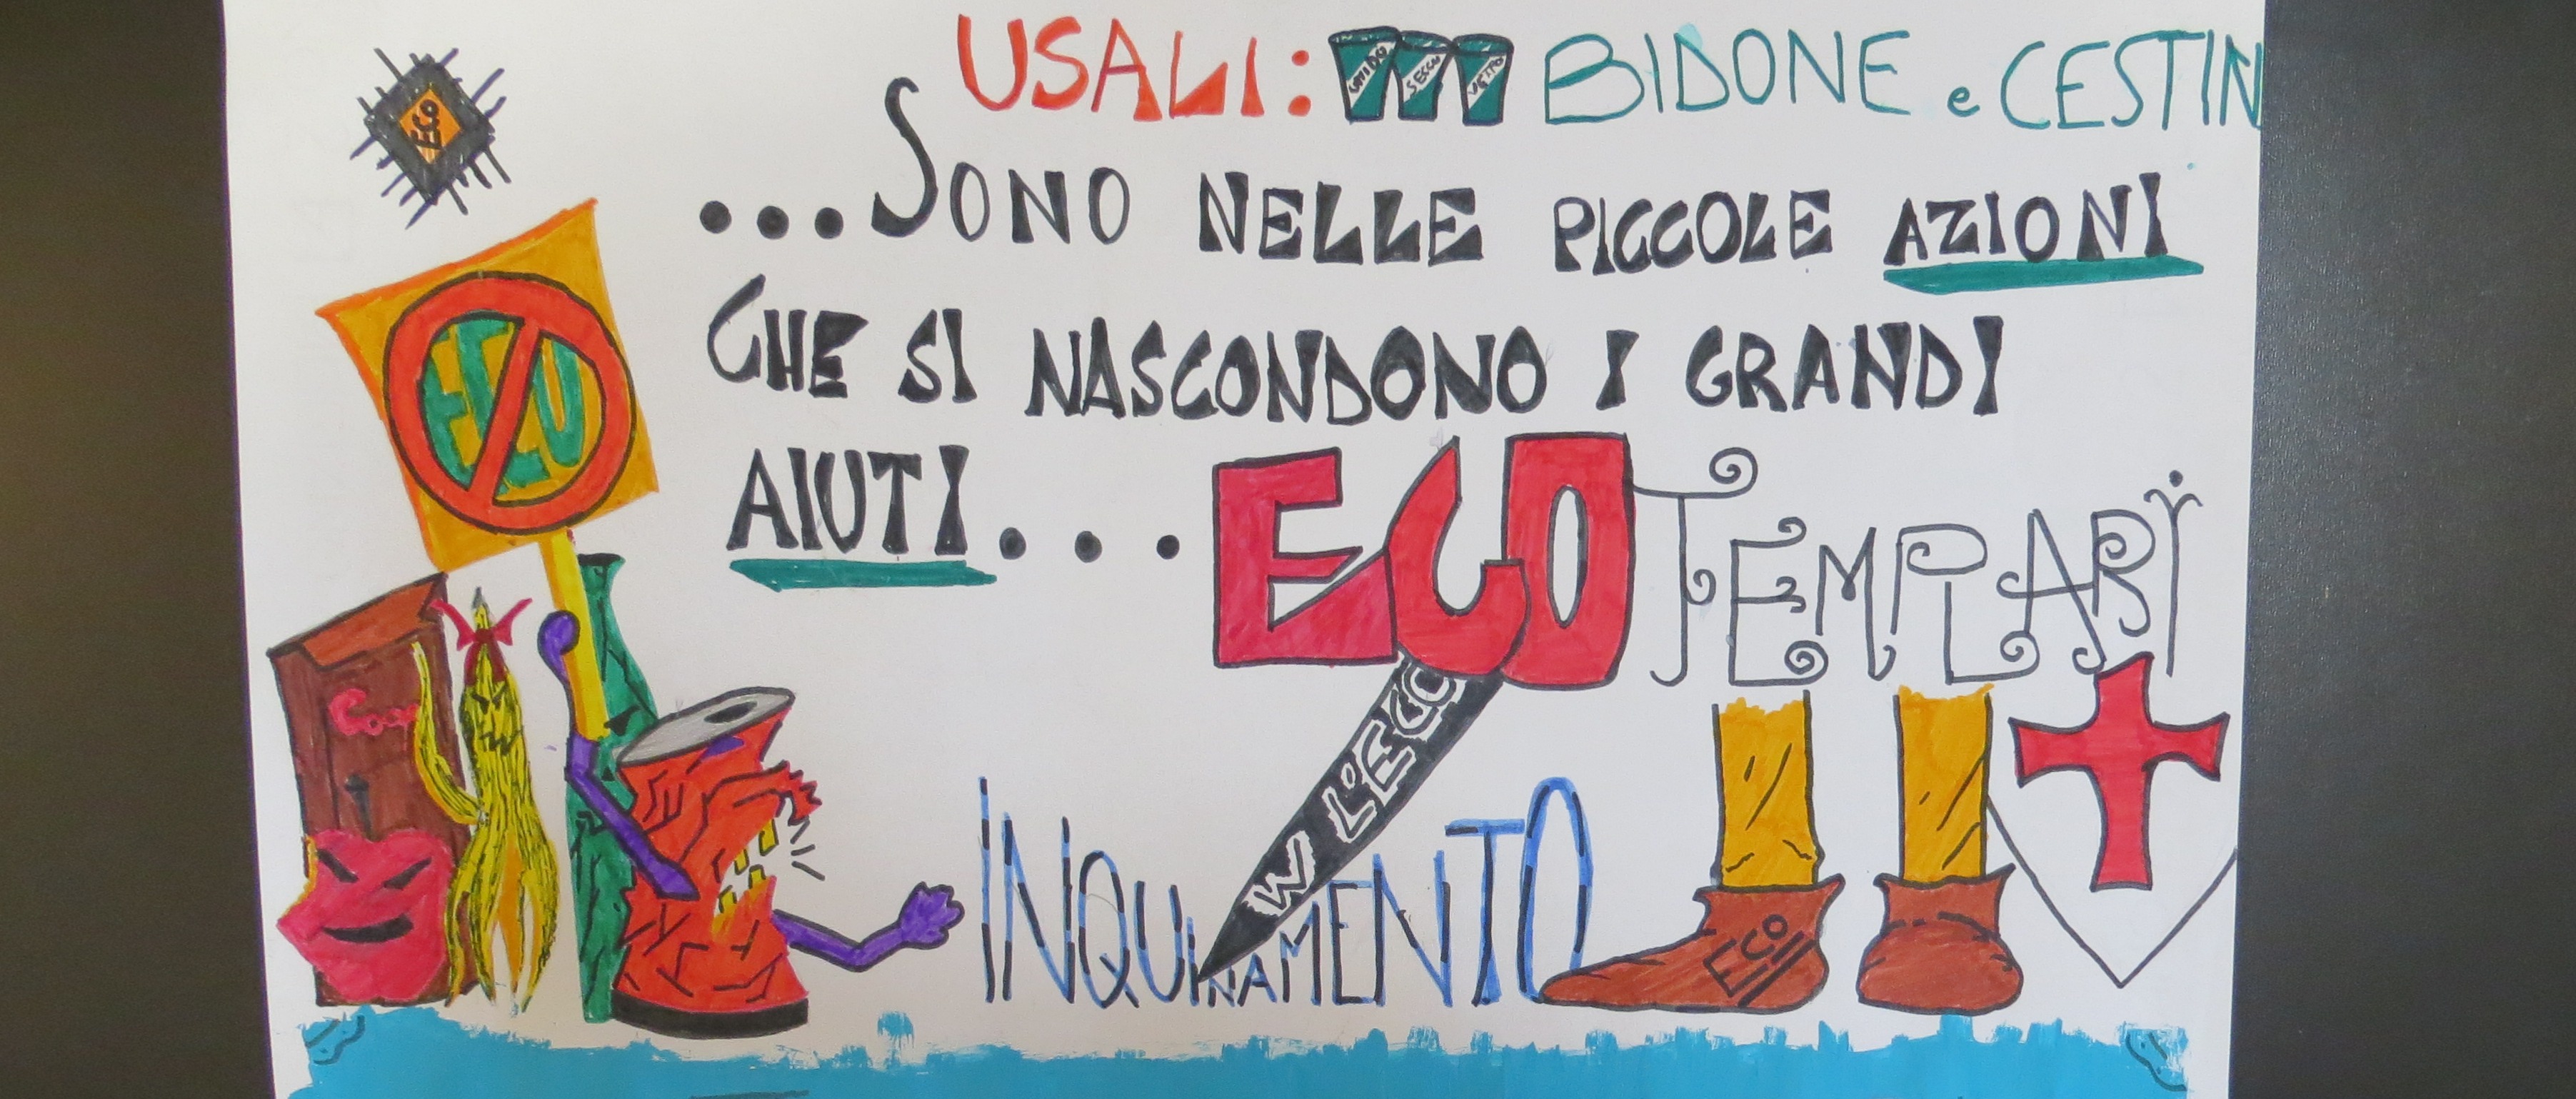 USALI: UMIDO SECCO VETRO BIDONE e CESTIN
ECO
...SONO NELLE PICCOLE AZIONI
CHE SI NASCONDONO I GRANDI
AIUTI...
ECO
ECO TEMPLARI
W L'ECO
INQUINAMENTO
ECO